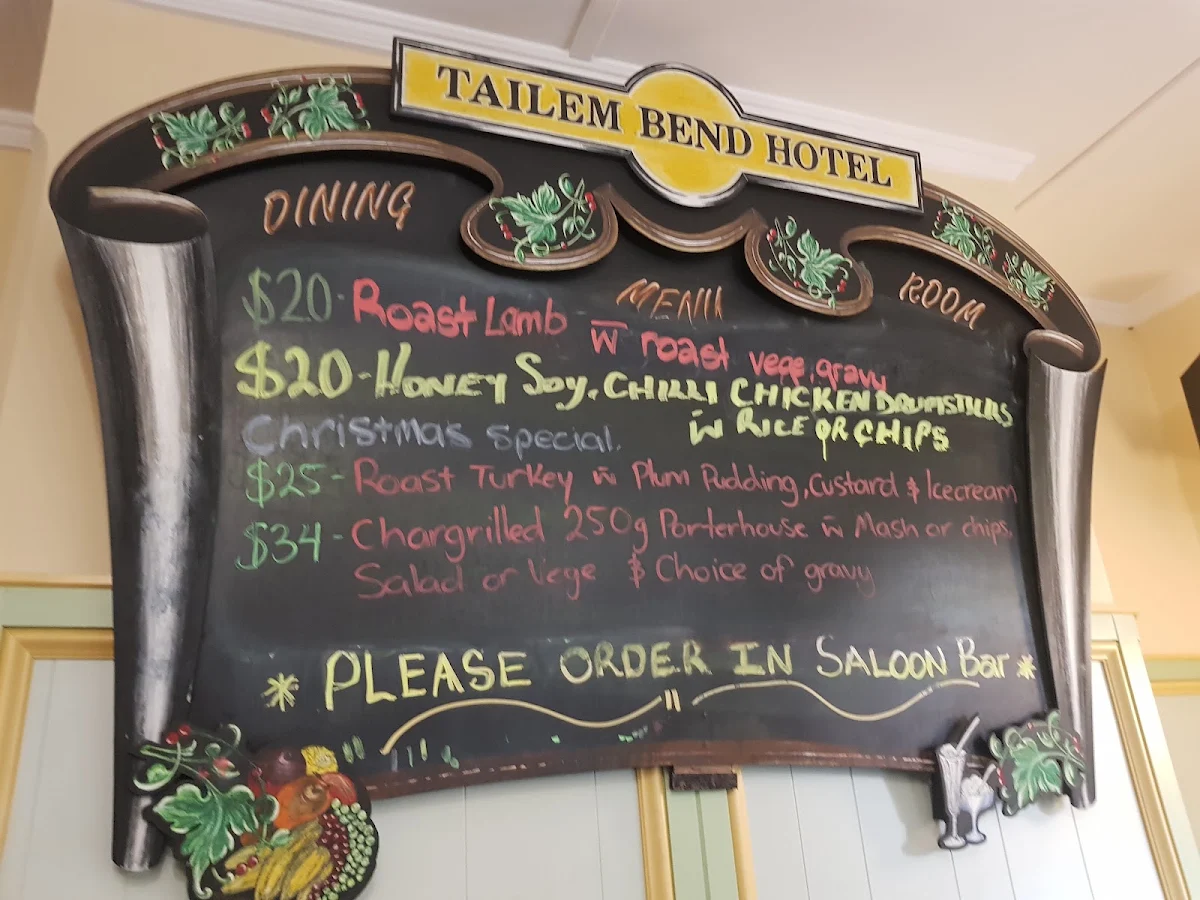 TAILEM BEND HOTEL
DINING
MENU
ROOM
$20 - Roast Lamb w̄ roast vege, gravy
$20 - HONEY Soy, CHILLI CHICKEN DRUMSTICKS
w̄ RICE OR CHIPS
Christmas Special.
$25 - Roast Turkey w̄ Plum Pudding, Custard & Icecream
$34 - Chargrilled 250g Porterhouse w̄ Mash or chips,
Salad or Vege & Choice of gravy
* PLEASE ORDER IN SALOON Bar *